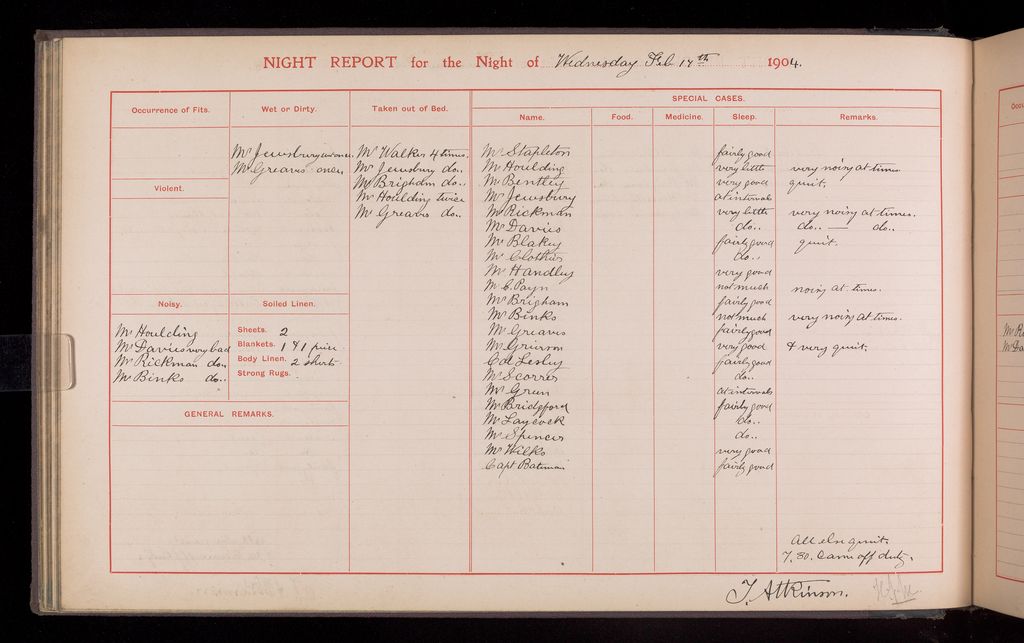 NIGHT REPORT for the Night of Wednesday Feb 17th 1904.
Occurrence of Fits.
Wet or Dirty.
Mr Jewsbury wet once.
Mr Greaves once
Taken out of Bed.
Mr Walker 4 times.
Mr Jewsbury do..
Mr Brigham do..
Mr Houlding twice
Mr Greaves do..
Violent.
Noisy.
Mr Houlding
Mr Davies very bad
Mr Rickman do..
Mr Binks do..
Soiled Linen.
Sheets. 2
Blankets. 1 & 1 piece
Body Linen. 2 shirts
Strong Rugs.
GENERAL REMARKS.
SPECIAL CASES.
Name. Food. Medicine. Sleep. Remarks.
Mr Stapleton fairly good
Mr Houlding very little very noisy at times
Mr Bentley very good quiet.
Mr Jewsbury at intervals
Mr Rickman very little very noisy at times.
Mr Davies do.. do.. — do..
Mr Blakey fairly good quiet.
Mr Clothier do..
Mr Handley very good
Mr C. Payn not much noisy at times.
Mr Brigham fairly good
Mr Binks not much very noisy at times.
Mr Greaves fairly good
Mr Grierson very good & very quiet.
Col Lesley fairly good
Mr Scorrer do..
Mr Green at intervals
Mr Bridgford fairly good
Mr Laycock do..
Mr Spencer do..
Mr Wilks very good
Capt Bateman fairly good
All else quiet.
7.30. Came off duty.
T. Atkinson.